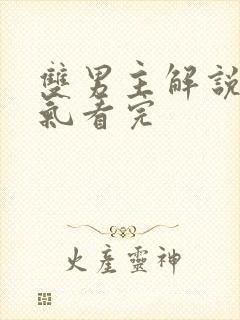 雙男主解說
氣看完
火產靈神